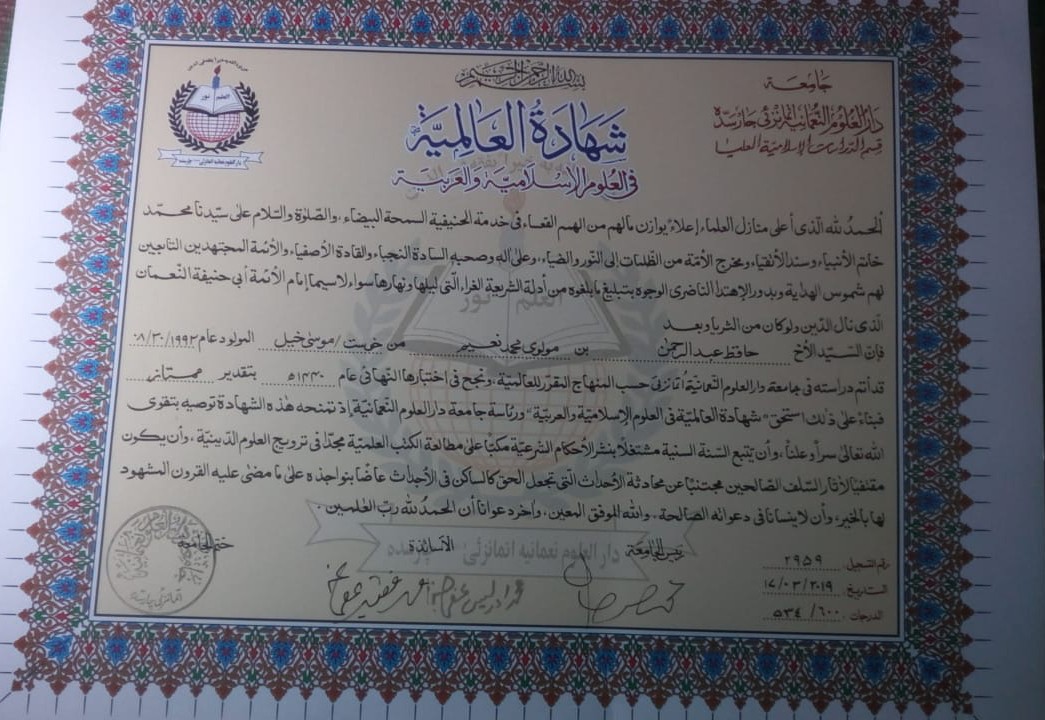 بسم الله الرحمن الرحيم
جامعة
دار العلوم النعمانية اتمانزئی چارسدہ
قسم الدراسات الإسلامية العليا
العلم نور
شهادة العالمية
في العلوم الإسلامية والعربية
الحمد لله الذى أعلى منازل العلماء إعلاءً يوازن مالهم من الهمم القعساء فى خدمة الحنيفية السمحة البيضاء، والصلوة والسلام على سيدنا محمد
خاتم الأنبياء وسند الأتقياء، ومخرج الأمة من الظلمات إلى النور والضياء، وعلى آله وصحبه السادة النجباء والقادة الأصفياء والأئمة المجتهدين التابعين
لهم شموس الهداية وبدور الإهتدا الناضرى الوجوه بتبليغ ما بلغوه من أدلة الشريعة الغراء الّتى ليلها ونهارها سواء لاسيما إمام الأئمة أبي حنيفة النعمان
الذى نال الدين ولو كان من الثريا وبعد
فإن السيد الأخ حافظ عبد الرحمن بن مولوى محمد نعيم من خوست / موسى خيل المولود عام ٠٨/٣٠/١٩٩٢
قد أتم دراسته في جامعة دار العلوم النعمانية اتمانزئی حسب المنهاج المقرر للعالمية، ونجح فى اختبارها النهائى عام ١٤٤٠ھ بتقدير ممتاز
فبناءً على ذلك استحق "شهادة العالمية فى العلوم الإسلامية والعربية" ورئاسة جامعة دار العلوم النعمانية إذ تمنحه هذه الشهادة توصيه بتقوى
الله تعالىٰ سراً وعلناً، وأن يتبع السنة السنية مشتغلاً بنشر الأحكام الشرعية مكبّاً على مطالعة الكتب العلمية مجدّاً فى ترويج العلوم الدينية، وأن يكون
مقتفياً لأثار السلف الصالحين مجتنباً عن محادثة الأحداث التى تجعل الحق كالساكن فى الأجداث عاضّاً بنواجذه على ما مضى عليه القرون المشهود
لها بالخير، وأن لا ينسانا فى دعواته الصالحة، والله الموفق المعين، واٰخر دعوانا أن الحمد لله ربّ العٰلمين.
ختم الجامعة
الأساتذة
رئيس الجامعة
دار العلوم نعمانيه اتمانزئی چارسده
رقم التسجيل: ٢٩٥٩
التاريخ: ١٧/٠٣/٢٠١٩
الدرجات: ٥٣٤/٦٠٠